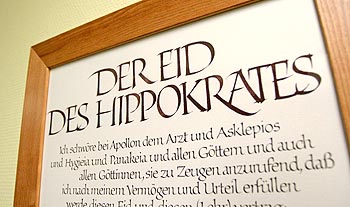 DER EID
DES HIPPOKRATES
Ich schwöre bei Apollon dem Arzt und Asklepios
und Hygieia und Panakeia und allen Göttern und auch
allen Göttinnen, sie zu Zeugen anzurufend, daß
ich nach meinem Vermögen und Urteil erfüllen
werde diesen Eid und diesen (Lehr) vertrag: